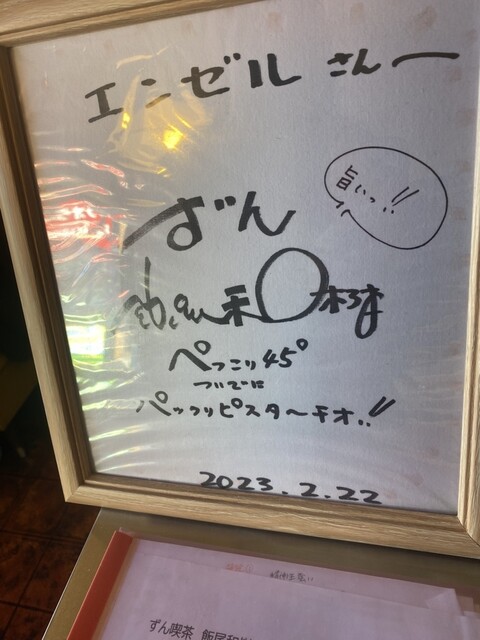 エンゼル さんへ
旨いっ!!
ずん
飯尾和樹
ぺっこり45°
ついでに
パックリピスターチオ..!!
2023.2.22
ずん喫茶 飯尾和樹